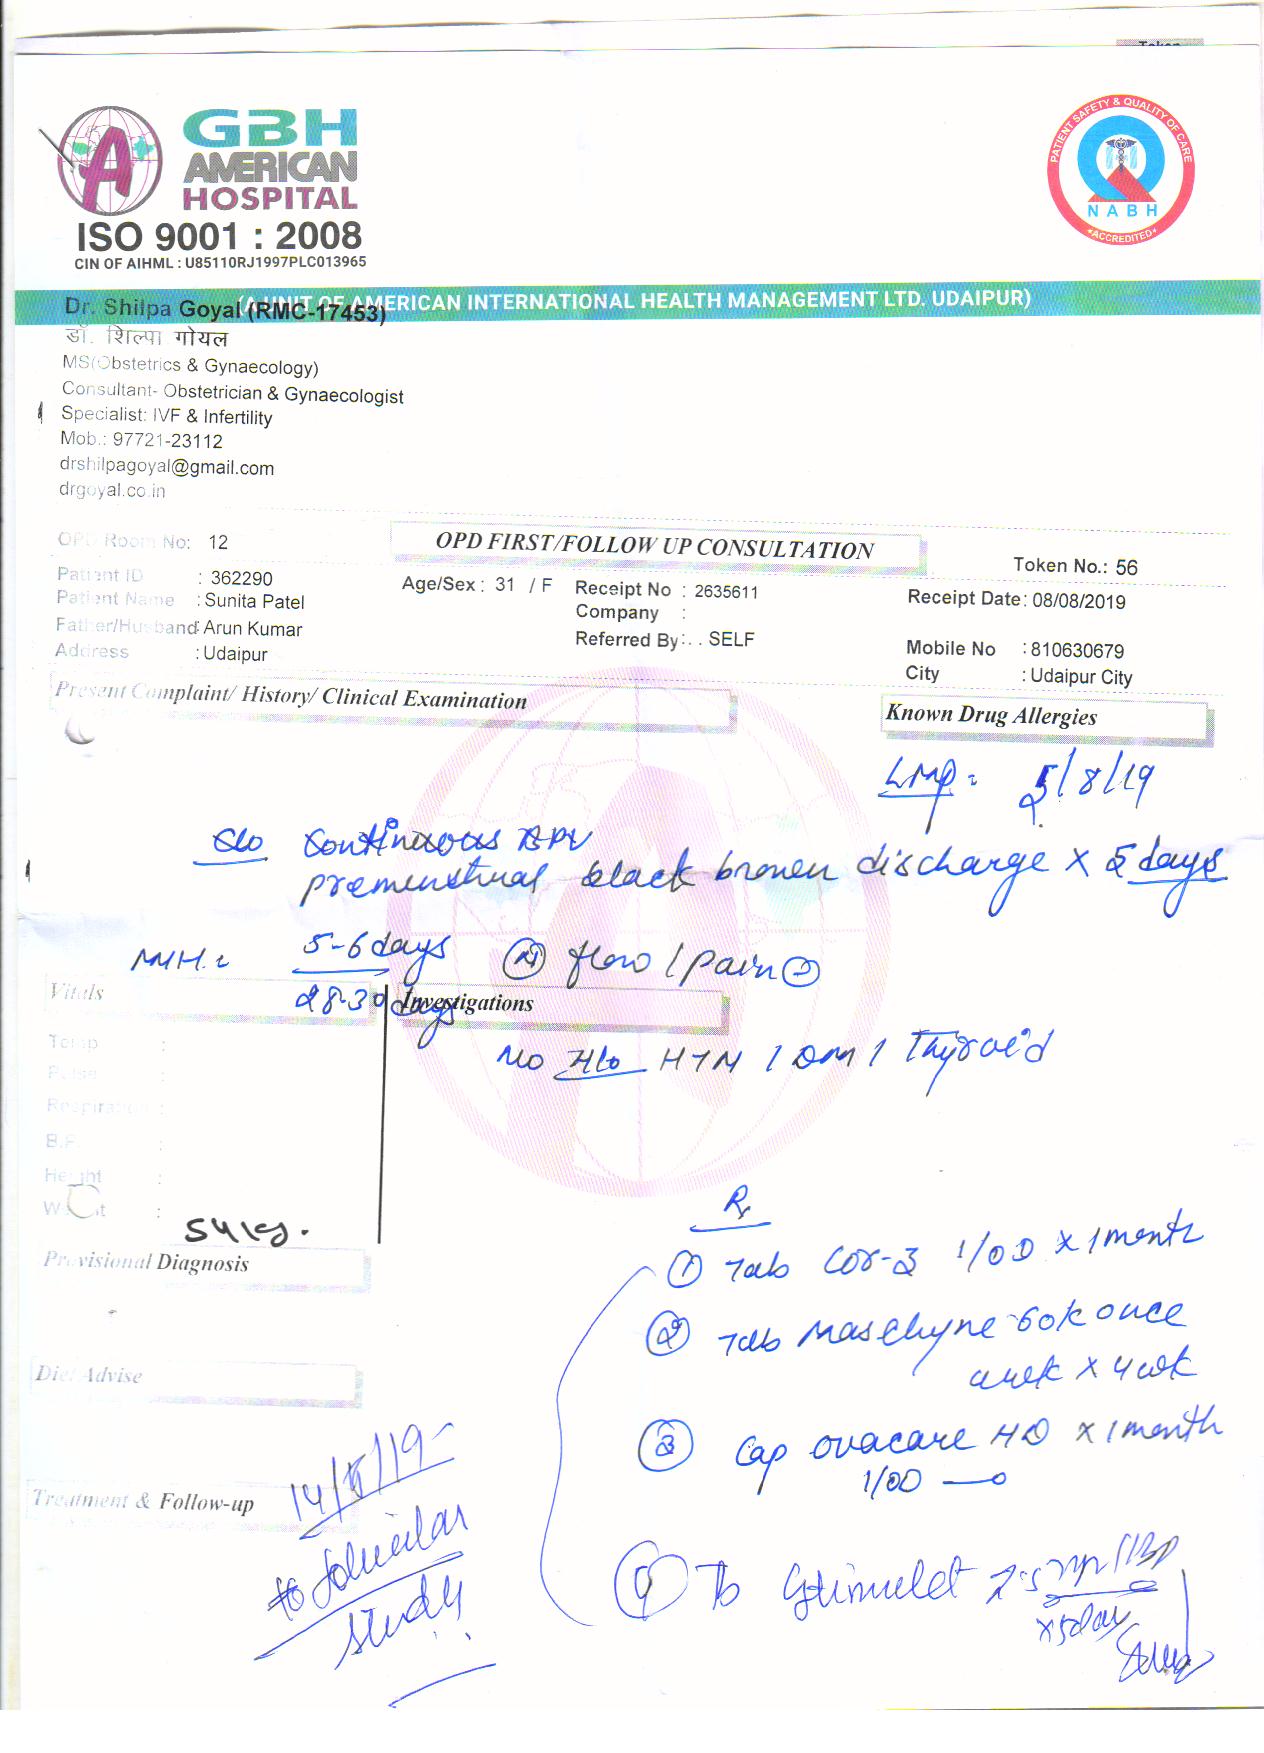 Token
GBH
AMERICAN
HOSPITAL
ISO 9001 : 2008
CIN OF AIHML : U85110RJ1997PLC013965
PATIENT SAFETY & QUALITY OF CARE
NABH
ACCREDITED
(A UNIT OF AMERICAN INTERNATIONAL HEALTH MANAGEMENT LTD. UDAIPUR)
Dr. Shilpa Goyal (RMC-17453)
डॉ. शिल्पा गोयल
MS(Obstetrics & Gynaecology)
Consultant- Obstetrician & Gynaecologist
Specialist: IVF & Infertility
Mob.: 97721-23112
drshilpagoyal@gmail.com
drgoyal.co.in
OPD Room No: 12
OPD FIRST/FOLLOW UP CONSULTATION
Token No.: 56
Patient ID : 362290
Age/Sex : 31 / F
Receipt No : 2635611
Receipt Date: 08/08/2019
Patient Name : Sunita Patel
Company :
Father/Husband: Arun Kumar
Referred By: . . SELF
Mobile No : 810630679
Address : Udaipur
City : Udaipur City
Present Complaint/ History/ Clinical Examination
Known Drug Allergies
LMP = 5/8/19
Continuous BPV
premenstrual black brown discharge x 5 days
M/H: 5-6 days (N) flow / pain
28-30 days
Vitals
Investigations
No H/o HTN / DM / Thyroid
Temp :
Pulse :
Respiration :
B.P. :
Height :
Weight : 54 kg.
Provisional Diagnosis
Diet Advise
Treatment & Follow-up
Rx
① Tab Cor-3 1/OD x 1 month
② Tab 60k once
week x 4 wk
③ Cap ovacare HD x 1 month
1/OD
④ Tb
x 5 day
follicular
study